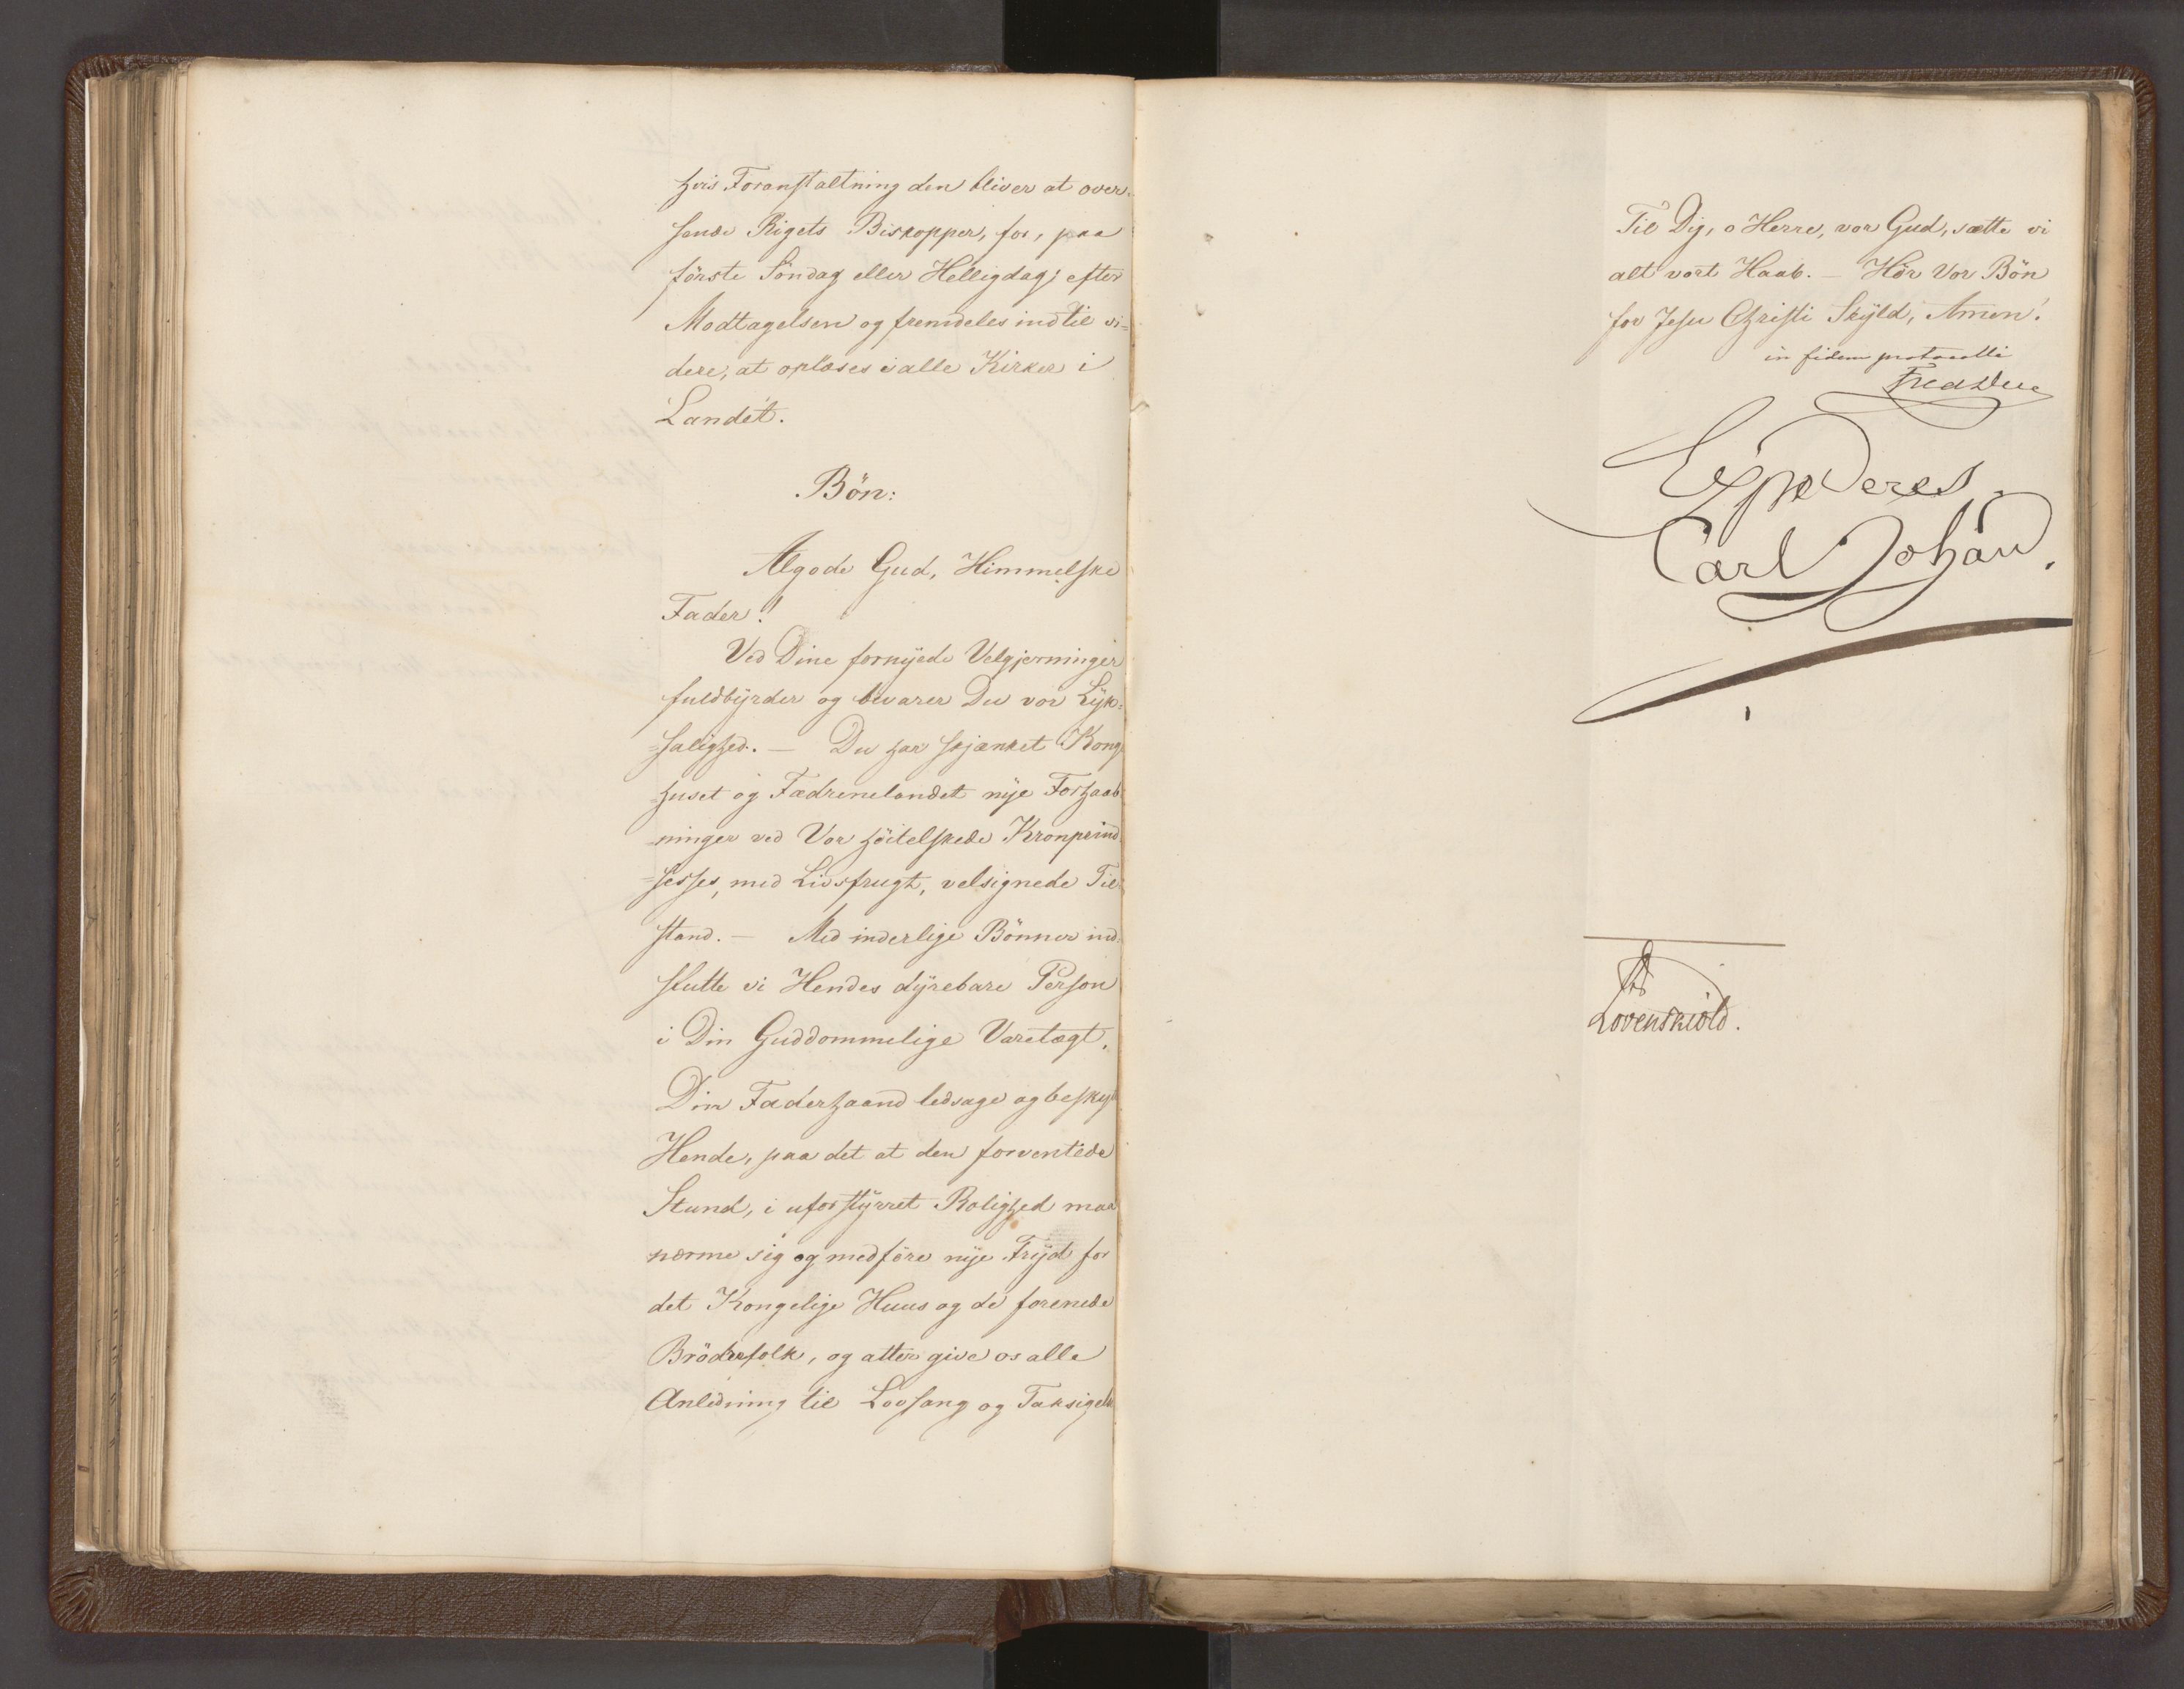 hvis Foranstaltning den bliver at over-
sende Rigets Biskopper, for, paa
förste Söndag eller Helligdag; efter
Modtagelsen og fremdeles indtil vi=
dere, at oplæses i alle Kirker i
Landet.
Bön:
Algode Gud, Himmelske
Fader!
Ved Dine fornyede Velgjerninger
fuldbyrder og bevarer Du vor Lyk=
=salighed. – Du har skjænket Konge
=huset og Fædrenelandet nye Forhaab
=ninger ved Vor höitelskede Kronprind
=sesses, med Livsfrugt, velsignede Til
stand. – Med inderlige Bönner ind
slutte vi Hendes dyrebare Person
i Din Guddommelige Varetægt.
Din Faderhaand ledsage og beskytte
Hende, paa det at den forventede
Stund, i uforstyrret Rolighed maa
nærme sig og medföre nye Fryd for
det Kongelige Huus og de forenede
Brödrefolk, og atter give os alle
Anledning til Lovsang og Taksigelse
Til Dig, o Herre, vor Gud, sætte vi
alt vort Haab. – Hör Vor Bön
for Jesu Christi Skyld, Amen!
in fidem protocolli
Fred Due
Expederes
Carl Johan.
Lövenskiold.